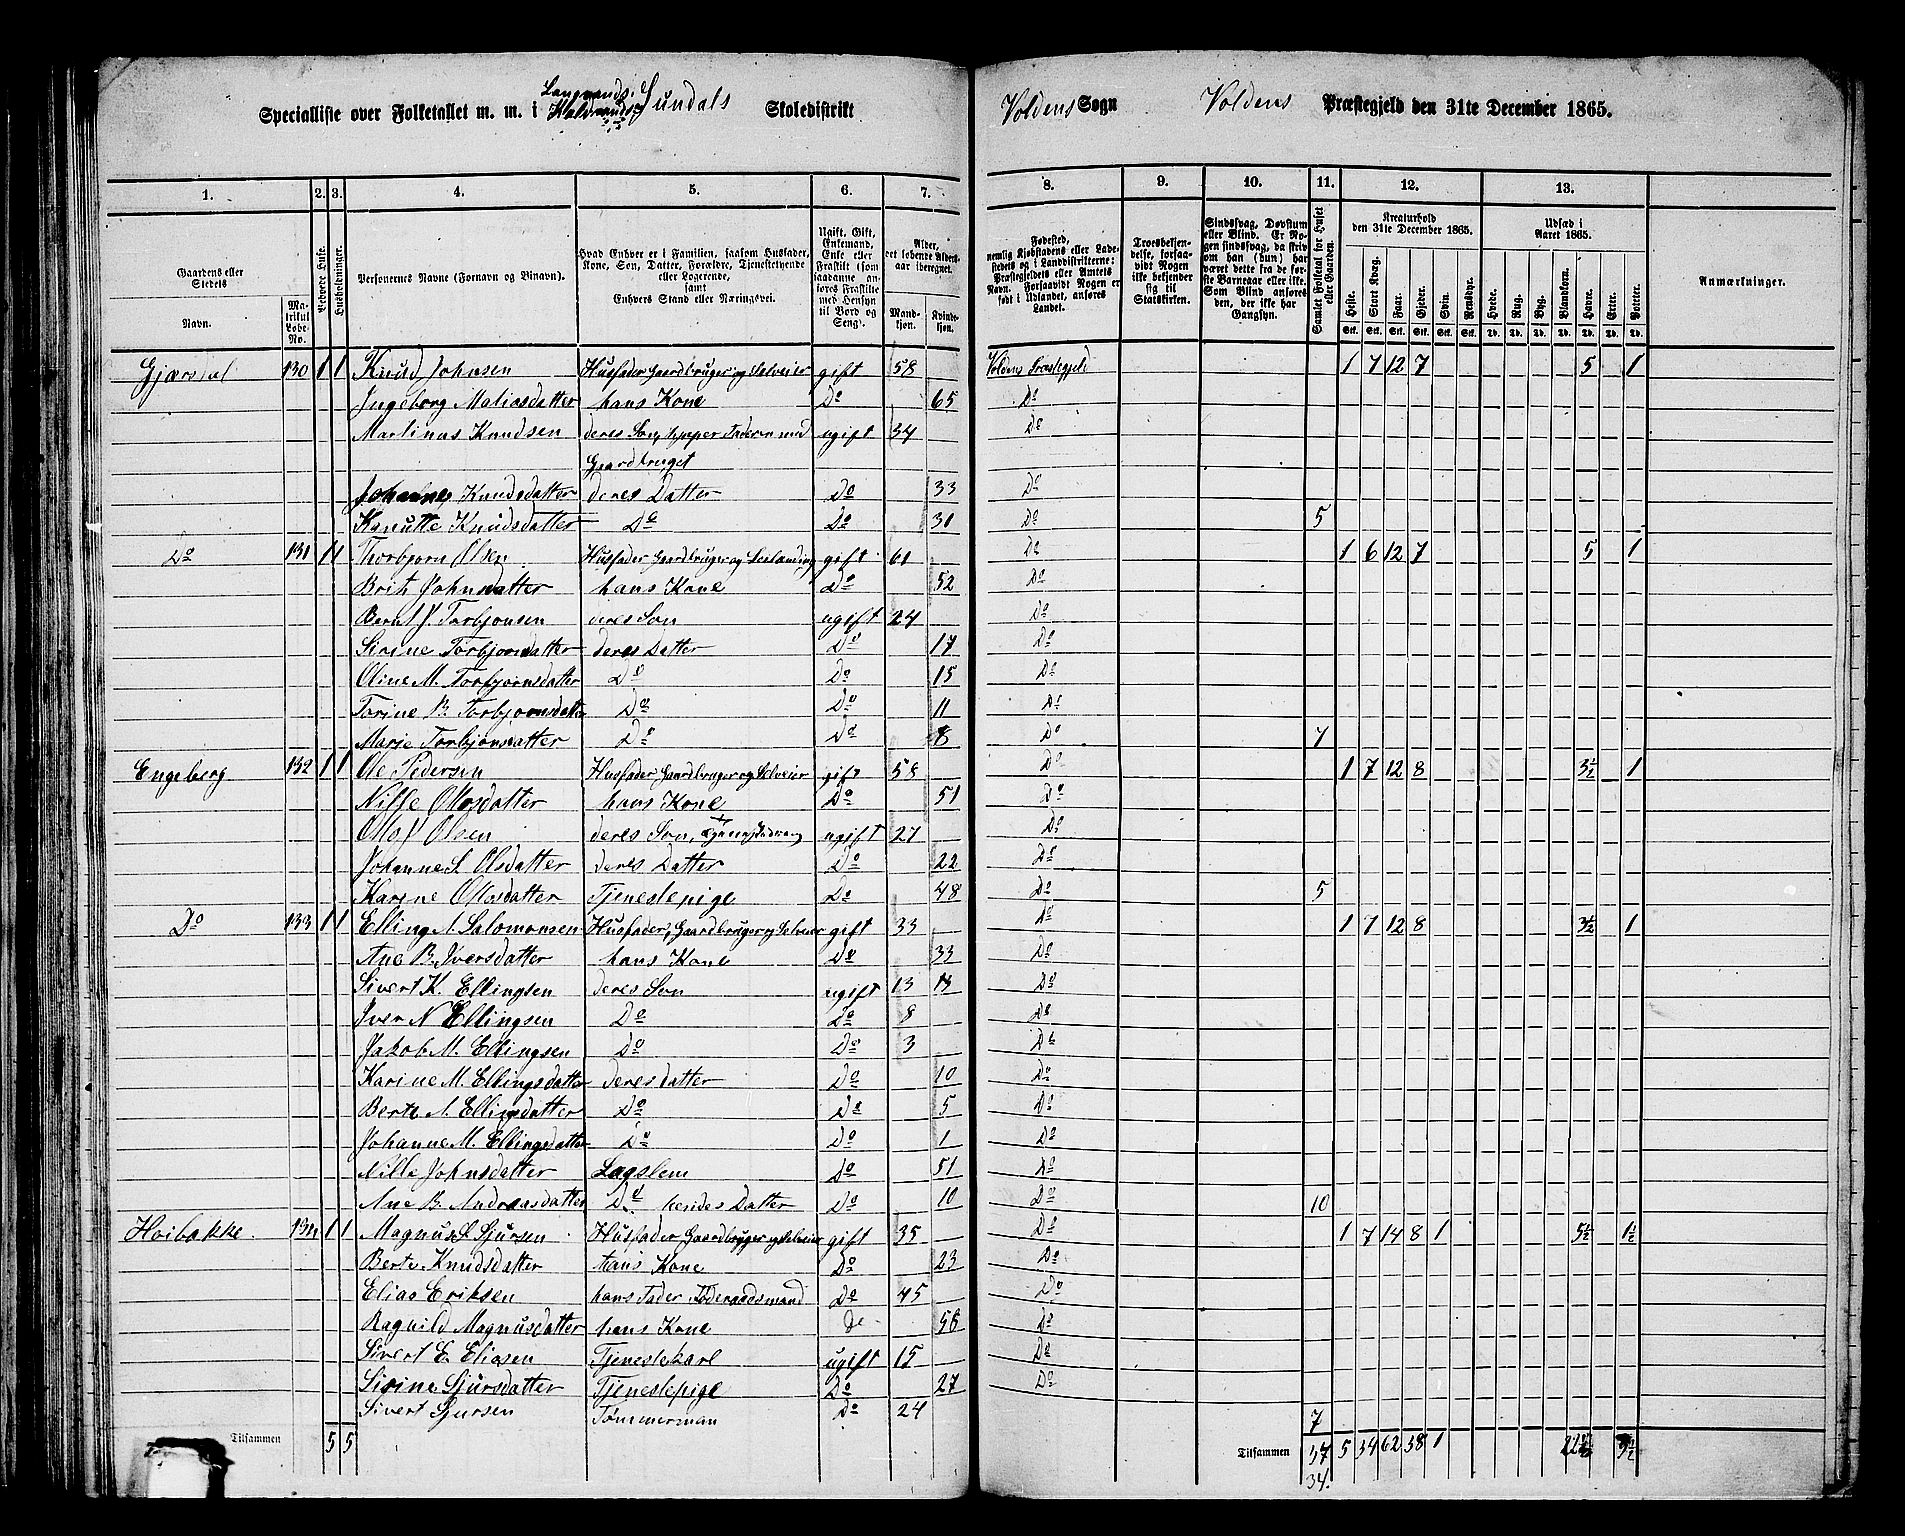 Specialliste over Folketallet m. m. i Sundals Skoledistrikt Voldens Sogn Voldens Præstegjeld den 31te December 1865.
1. 2. 3. 4. 5. 6. 7. 8. 9. 10. 11. 12. 13.
Gaardens eller Stedets Navn.
Matrikul Løbe-No.
Bebvede Huse.
Husholdninger.
Personernes Navne (Fornavn og Binavn).
Hvad Enhver er i Familien, saasom Husfader, Kone, Søn, Datter, Forældre, Tjenestetyende eller Logerende, samt Enhvers Stand eller Næringsvei.
Ugift, Gift, Enkemand, Enke eller Fraskilt (som saadanne anføres Fraskilte med Hensyn til Bord og Seng).
Alder, det løbende Aldersaar iberegnet.
Mandkjøn. Kvindekjøn.
Fødested, nemlig Kjøbstadens eller Ladestedets og i Landdistrikterne: Præstegjeldets eller Amtets Navn. Forsaavidt Nogen er født i Udlandet, anføres Landet.
Troesbekjendelse, forsaavidt Nogen ikke bekjender sig til Statskirken.
Sindssvag, Døvstum eller Blind. Er Nogen sindssvag, da skrives om han (hun) har været dette fra de første Barneaar eller ikke. Som Blind anføres den, der ikke har Gangsyn.
Samlet Folketal for Huset eller Gaarden.
Kreaturhold den 31te December 1865.
Heste. Stort Kvæg. Faar. Gjeder. Svin. Rensdyr.
Udsæd i Aaret 1865.
Hvede. Rug. Byg. Blandkorn. Havre. Erter. Poteter.
Anmærkninger.
Gjærdal 130 1 1 Knud Johnsen Husfader Gaardbruger og Selveier gift 58 Voldens Præstegjeld 1 7 12 7 5 1
Ingeborg Matiasdatter hans Kone Do 65 Do
Martinus Knudsen deres Søn, hjælper Faderen med ugift 34 Do
Gaardbruget
Johanne Knudsdatter deres Datter Do 33 Do
Kanutte Knudsdatter Do Do 31 Do 5
Do 131 1 1 Thorbjørn Olsen Husfader Gaardbruger og gift 61 Do 1 6 12 7 5 1
Brit Johnsdatter hans Kone Do 52 Do
Bernt J Torbjønsen deres Søn ugift 24 Do
Sirine Torbjørnsdatter deres Datter Do 17 Do
Oline M. Torbjørnsdatter Do Do 15 Do
Torine B. Torbjørnsdatter Do Do 11 Do
Marie Torbjønsdatter Do Do 8 Do 7
Engeberg 132 1 1 Ole Pedersen Husfader, Gaardbruger og Selveier gift 58 Do 1 7 12 8 3½ 1
Nille Olosdatter hans Kone Do 51 Do
Olof Olsen deres Søn, ugift 27 Do
Johanne L Olsdatter deres Datter Do 22 Do
Karine Olosdatter Tjenestepige Do 48 Do 5
Do 133 1 1 Elling A. Salomonsen Husfader, Gaardbruger og Selveier gift 33 Do 1 7 12 8 3½ 1
Ane B. Iversdatter hans Kone Do 33 Do
Sivert K. Ellingsen deres Søn ugift 13 13 Do
Iver N Ellingsen Do Do 8 Do
Jakob M. Ellingsen Do Do 3 Do
Karine M. Ellingsdatter deres datter Do 10 Do
Berte A. Ellingsdatter Do Do 5 Do
Johanne M. Ellingsdatter Do Do 1 Do
Nille Johnsdatter Lagslem Do 51 Do
Ane B. Andreasdatter Do hendes Datter Do 10 Do 10
Hoibakke 134 1 1 Magnus S. Sjursen Husfader Gaardbruger og Selveier gift 35 Do 1 7 14 8 1 5½ 1½
Berte Knudsdatter hans Kone Do 23 Do
Elias Eriksen hans Fader Føderaadsmand Do 45 Do
Ragnild Magnusdatter hans Kone Do 58 Do
Sivert E. Eliasen Tjenestekarl ugift 15 Do
Sirine Sjursdatter Tjenestepige Do 27 Do
Sivert Sjursen Tømmerman Do 24 7
Tilsammen 5 5 Tilsammen 37 5 34 62 38 1 22½ 5½
34.